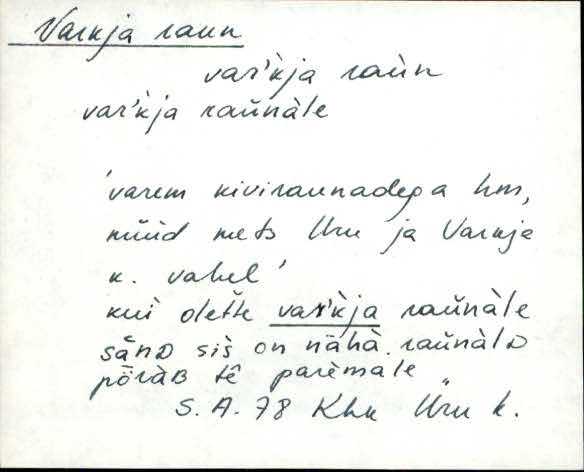 Varkja raun
var'k̀ja raùn
var'k̀ja raŭnàle
'varem kiviraunadega hm,
nüüd mets Üru ja Varkja
k. vahel'
kui olette var'k̀ja raŭnàle
sānD siìs on nähà. raŭnàlD
pöràB tē parèmale
S. A. 78 Khk Üru k.